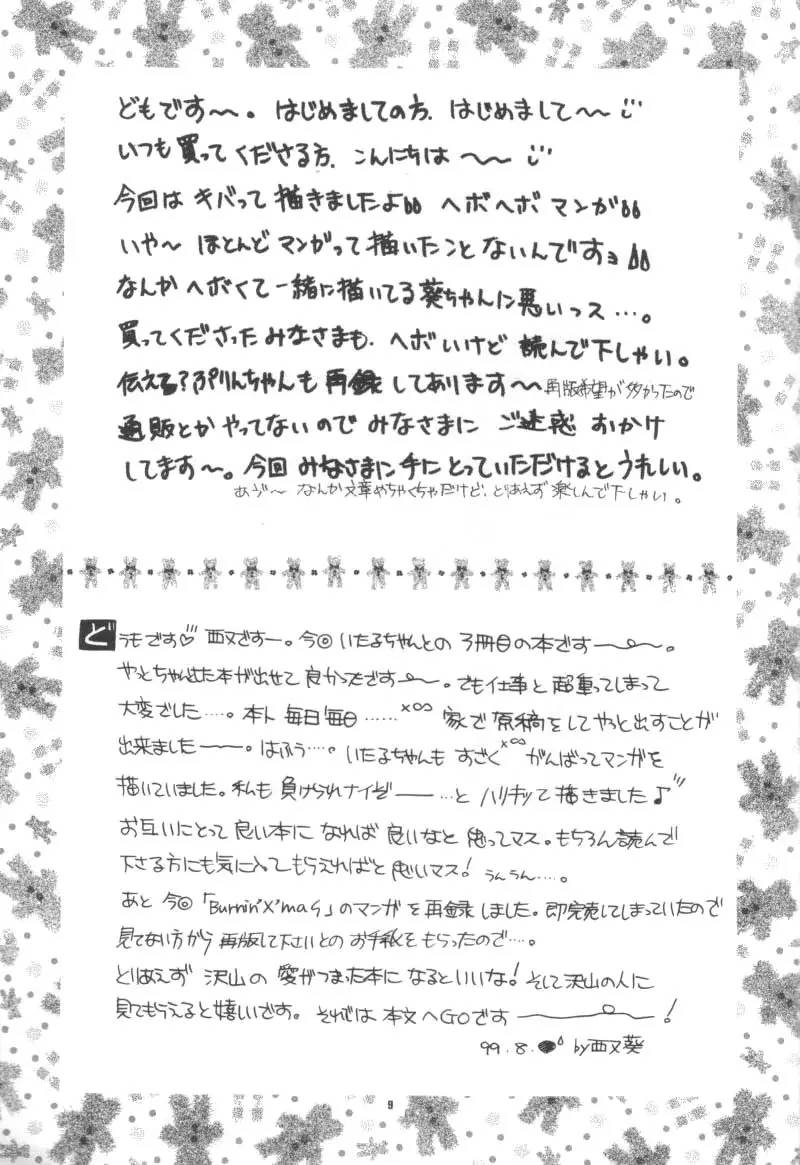 どもです〜。はじめましての方、はじめまして〜
いつも買ってくださる方、こんにちは〜
今回はキバって描きましたよ ヘボヘボマンが
いや〜ほとんどマンガって描いたことないんですョ
なんかヘボくて一緒に描いてる葵ちゃんに悪いっス…。
買ってくださったみなさまも、ヘボいけど読んで下しゃい。
伝える?ぷりんちゃんも再録してあります〜再版希望が多かったので
通販とかやってないのでみなさまにご迷惑おかけ
してます〜。今回みなさまに手にとっていただけるとうれしい。
なんか文章めちゃくちゃだけど、とりあえず楽しんで下しゃい。
どうもです♡西又ですー。今回いたるちゃんとの3冊目の本ですー〜。
やっとちゃんとした本が出せて良かったです〜。でも仕事と超重ってしまって
大変でした…。本ト毎日毎日……×∞ 家で原稿をしてやっと出すことが
出来ましたー。はふぅ…。いたるちゃんもすごく×∞がんばってマンガを
描いていました。私も負けられナイぞー…とハリキッて描きました♪
お互いにとって良い本になれば良いなと思ってマス。もちろん読んで
下さる方にも気に入ってもらえればと思いマス!うんうん…。
あと今回「Burnin'X'mas」のマンガを再録しました。即完売してしまっていたので
見てない方から再版して下さいとのお手紙をもらったので…。
とりあえず沢山の愛がつまった本になるといいな!そして沢山の人に
見てもらえると嬉しいです。それでは本文へGOです〜!
99.8. by西又葵
9